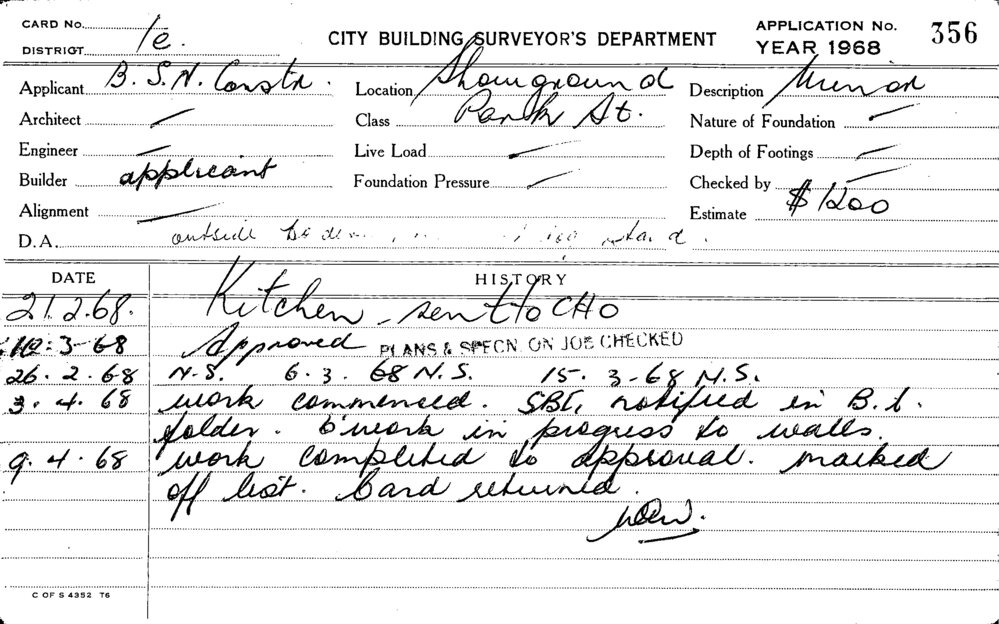 CARD No.
DISTRICT 1e.
CITY BUILDING SURVEYOR'S DEPARTMENT
APPLICATION No. 356
YEAR 1968
Applicant B. S. N. Constn. Location Showground Description Minor
Architect — Class Park St. Nature of Foundation —
Engineer — Live Load — Depth of Footings —
Builder applicant Foundation Pressure — Checked by —
Alignment — Estimate $1200
D.A. outside
DATE HISTORY
21.2.68. Kitchen - sent to CHO
3-68 Approved PLANS & SPECN. ON JOB CHECKED
26.2.68 N.S. 6.3.68 N.S. 15.3-68 N.S.
3.4.68 work commenced. notified in B.I.
folder. B'work in progress to walls.
9.4.68 work completed to approval. marked
off list. Card returned.
C OF S 4352 T6